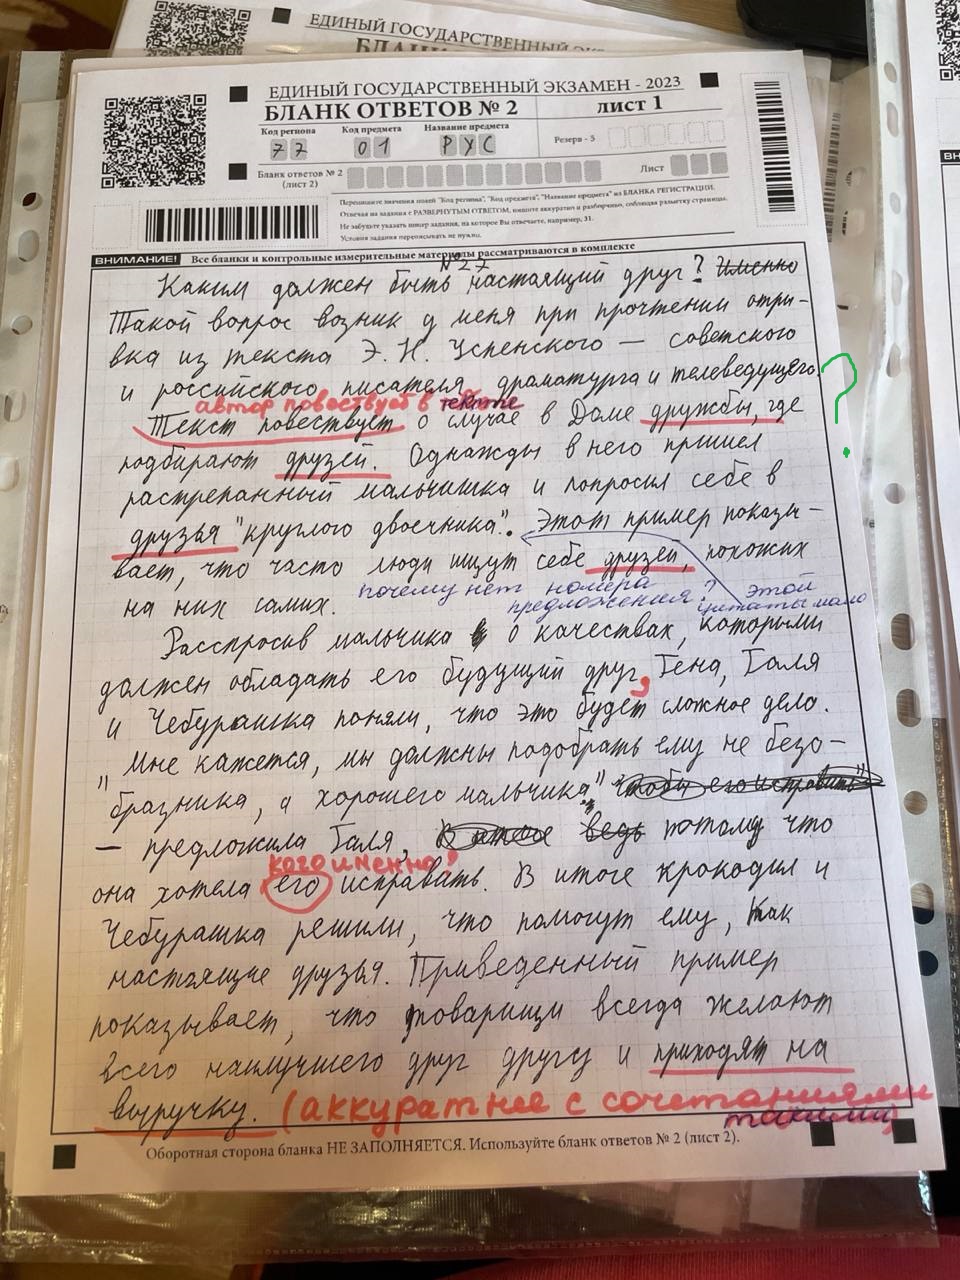 ЕДИНЫЙ ГОСУДАРСТВЕННЫЙ ЭКЗ
БЛАНК
ЕДИНЫЙ ГОСУДАРСТВЕННЫЙ ЭКЗАМЕН - 2023
БЛАНК ОТВЕТОВ № 2
ЛИСТ 1
Код региона Код предмета Название предмета
77 01 РУС
Резерв - 5
Бланк ответов № 2 (лист 2)
Лист
Перепишите значения полей "Код региона", "Код предмета", "Название предмета" из БЛАНКА РЕГИСТРАЦИИ.
Отвечая на задания с РАЗВЕРНУТЫМ ОТВЕТОМ, пишите аккуратно и разборчиво, соблюдая разметку страницы.
Не забудьте указать номер задания, на которое Вы отвечаете, например, 31.
Условия задания переписывать не нужно.
ВНИМАНИЕ! Все бланки и контрольные измерительные материалы рассматриваются в комплекте
№27
Каким должен быть настоящий друг? Именно
Такой вопрос возник у меня при прочтении отры-
вка из текста Э. Н. Успенского — советского
и российского писателя, драматурга и телеведущего.
?
автор повествует в тексте
Текст повествует о случае в Доме дружбы, где
подбирают друзей. Однажды в него пришел
растрепанный мальчишка и попросил себе в
друзья "круглого двоечника". Этот пример показы-
вает, что часто люди ищут себе друзей, похожих
на них самих.
почему нет номера предложения?
этой цитаты мало
Расспросив мальчика о качествах, которыми
должен обладать его будущий друг, Гена, Галя
и Чебурашка поняли, что это будет сложное дело.
"Мне кажется, мы должны подобрать ему не безо-
бразника, а хорошего мальчика", чтобы его исправить"
— предложила Галя, ведь потому что
кого именно?
она хотела его исправить. В итоге крокодил и
Чебурашка решили, что помогут ему, как
настоящие друзья. Приведенный пример
показывает, что товарищи всегда желают
всего наилучшего друг другу и приходят на
выручку. (аккуратнее с сочетаниями
такими)
Оборотная сторона бланка НЕ ЗАПОЛНЯЕТСЯ. Используйте бланк ответов № 2 (лист 2).